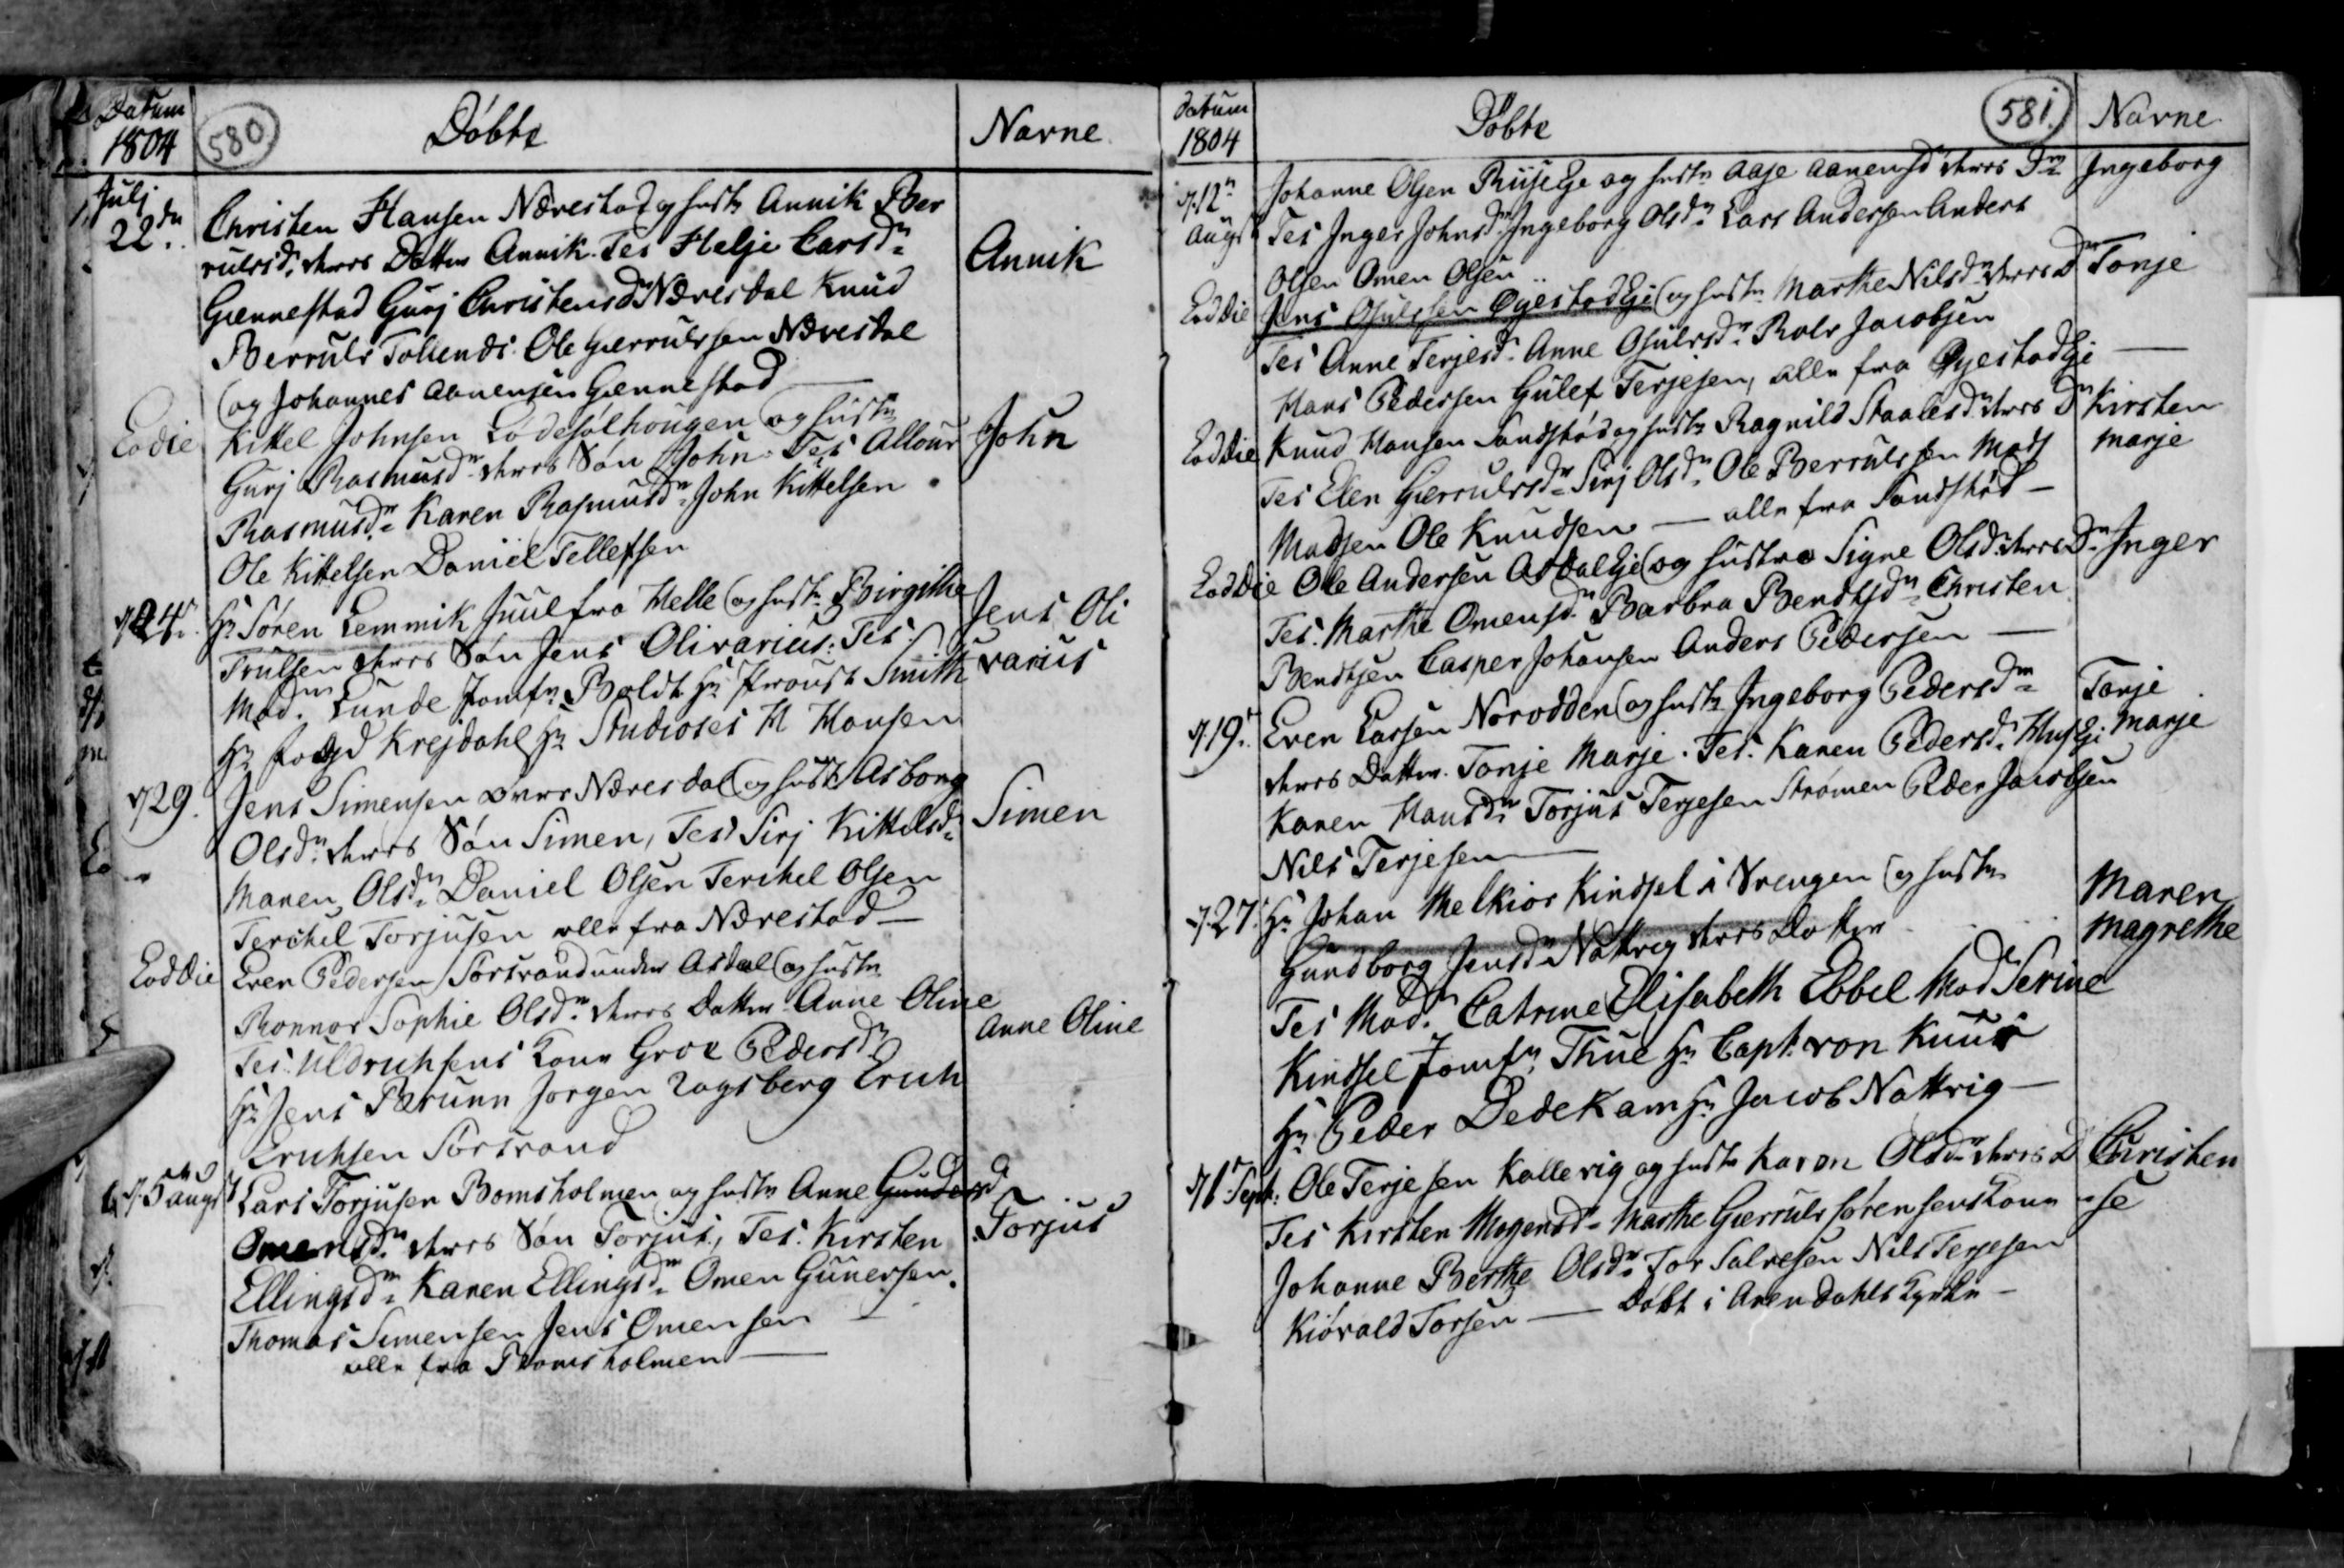 Datum
1804
580
Döbte
Navne
Julj
22de
Christen Hansen Nærestad og hustr Annik Ber
rulvsdr deres Datter Annik. Tes Helje Larsdr
Annik
Gennestad Gurj Christensdr Næresdal Knud
Berrulv Tollends. Ole Gierrulvsen Næresdal
og Johannes Aanensen Gennestad
Eodie
Kittel Johnsen Lødesølhougen og hustr
Gurj Rasmusdr deres Søn John. Tes Allour
John
Rasmusdr Karen Rasmusdr John Kittelsen
Ole Kittelsen Daniel Tellefsen
d. 24.
Hr Søren Lemmik Juul fra Helle og hustr Birgithe
Jens Oli
Trulsen deres Søn Jens Olivarius: Tes.
varius
Madm Lunde Jomfr Boldt Hr Proust Smith
Hr Fogd Krejdahl Hr Studioses H Hansen
d. 29.
Jens Simensen Næresdal og hustr Asborg
Olsdr deres Søn Simen, Tes Sirj Kittelsdr
Simen
Maren Olsdr Daniel Olsen Terchel Olsen
Terchel Torjusen alle fra Nærestad
Eoddie
Even Pedersen Sørsvand under Asdal og hustr
Ronnor Sophie Olsdr deres Datter Anne Oline
Anne Oline
Tes. Uldrichsens Kone Groe Pedersdr
Hr Jens Brunn Jørgen Vogsberg Erich
Erichsen Sørsvand
d. 5 augst
Lars Torjusen Bomsholmen og hustr Anne Gundersd
Omensdr deres Søn Torjus, Tes. Kirsten
Torjus
Ellingsdr Karen Ellingsdr Omen Gunersen.
Thomas Simensen Jens Omensen
alle fra Bomsholmen
Datum
1804
Döbte
581.
Navne
d. 12te
augst
Johanne Olsen Riisege og hustr Aase Aanensd deres Dr
Ingeborg
Tes Inger Johnsdr Ingeborg Olsdr Lars Andersen Anders
Olsen Omen Olsen
Eoddie
Jens Osulvsen Øyestad Eje og hustr Marthe Nilsdr deres Dr
Tonje
Tes Anne Terjesdr Anne Osulvsdr Rolv Jacobsen
Hans Pedersen Gulef Terjesen, alle fra Øyestad Eje
Eoddie
Knud Hansen Sandstød og hustr Ragnild Staalesdr deres Dr
Kirsten
marje
Tes Elen Gierrulvsdr Sirj Olsdr Ole Berrulvsen Mads
Madsen Ole Knudsen — alle fra Sandstød
Eoddie
Ole Andersen Asdal Eje og hustroe Signe Olsdr deres Dr
Inger
Tes. Marthe Omensdr Barbra Bendtsdr Christen
Bendtsen Casper Johansen Anders Pedersen
d. 19.
Even Larsen Norodden og hustr Ingeborg Pedersdr
Tonje
marje
deres Datter. Tonje Marje. Tes. Karen Pedersdr
Karen Hansdr Torjus Terjesen Strømen Peder Jacobsen
Nils Terjesen
d. 27.
Hr Johan Melkior Kindsel i Vrengen og hustr
Maren
magrethe
Gundborg Jensdr Nattvig deres Datter
Tes Madm Catrine Elisabeth Ebbel Mad Serine
Kindsel Jomfr Thue Hr Capt. von Knur
Hr Peder Dedekam Hr Jacob Nattvig
d. 1 Sept.
Ole Terjesen Kallevig og hustr Karen Olsdr deres D
Christen
se
Tes Kirsten Mogensd Marthe Gierrulv Sørensens Kone
Johanne Berthe Olsdr Tor Salvesen Nils Terjesen
Kiøvald Torsen — Døbt i Arendahls Kyrke